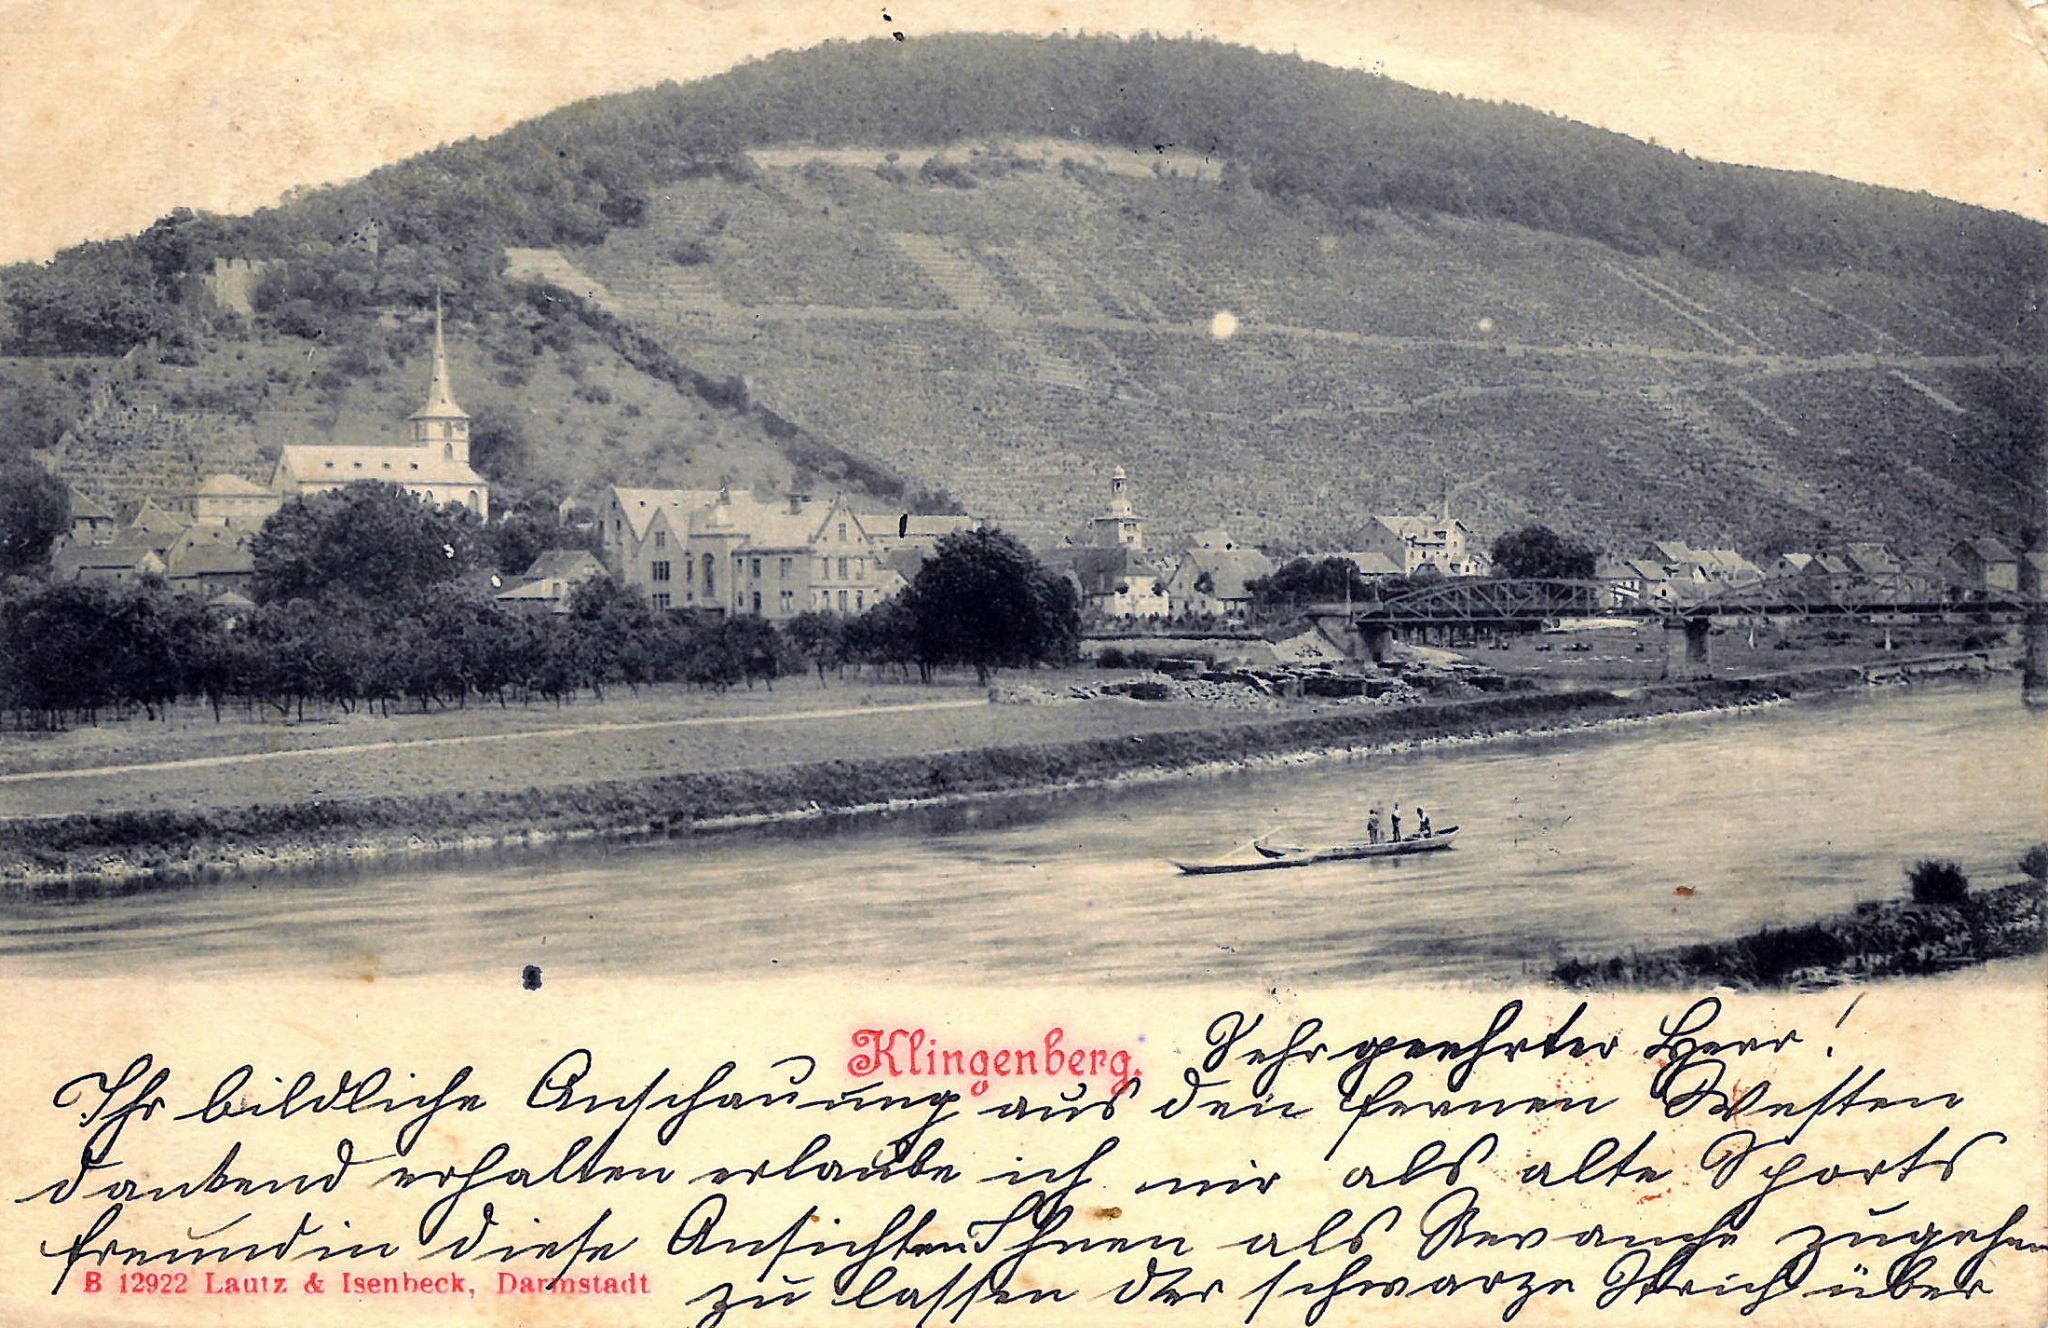 Klingenberg.
Sehr geehrter Herr!
Ihr bildliche Anschauung aus den fernen Westen
dankend erhalten erlaube ich mir als alte Sports
freundin diese Ansichten Ihnen als Revanche zugehen
zu lassen der schwarze Strich über
B 12922 Lautz & Isenbeck, Darmstadt